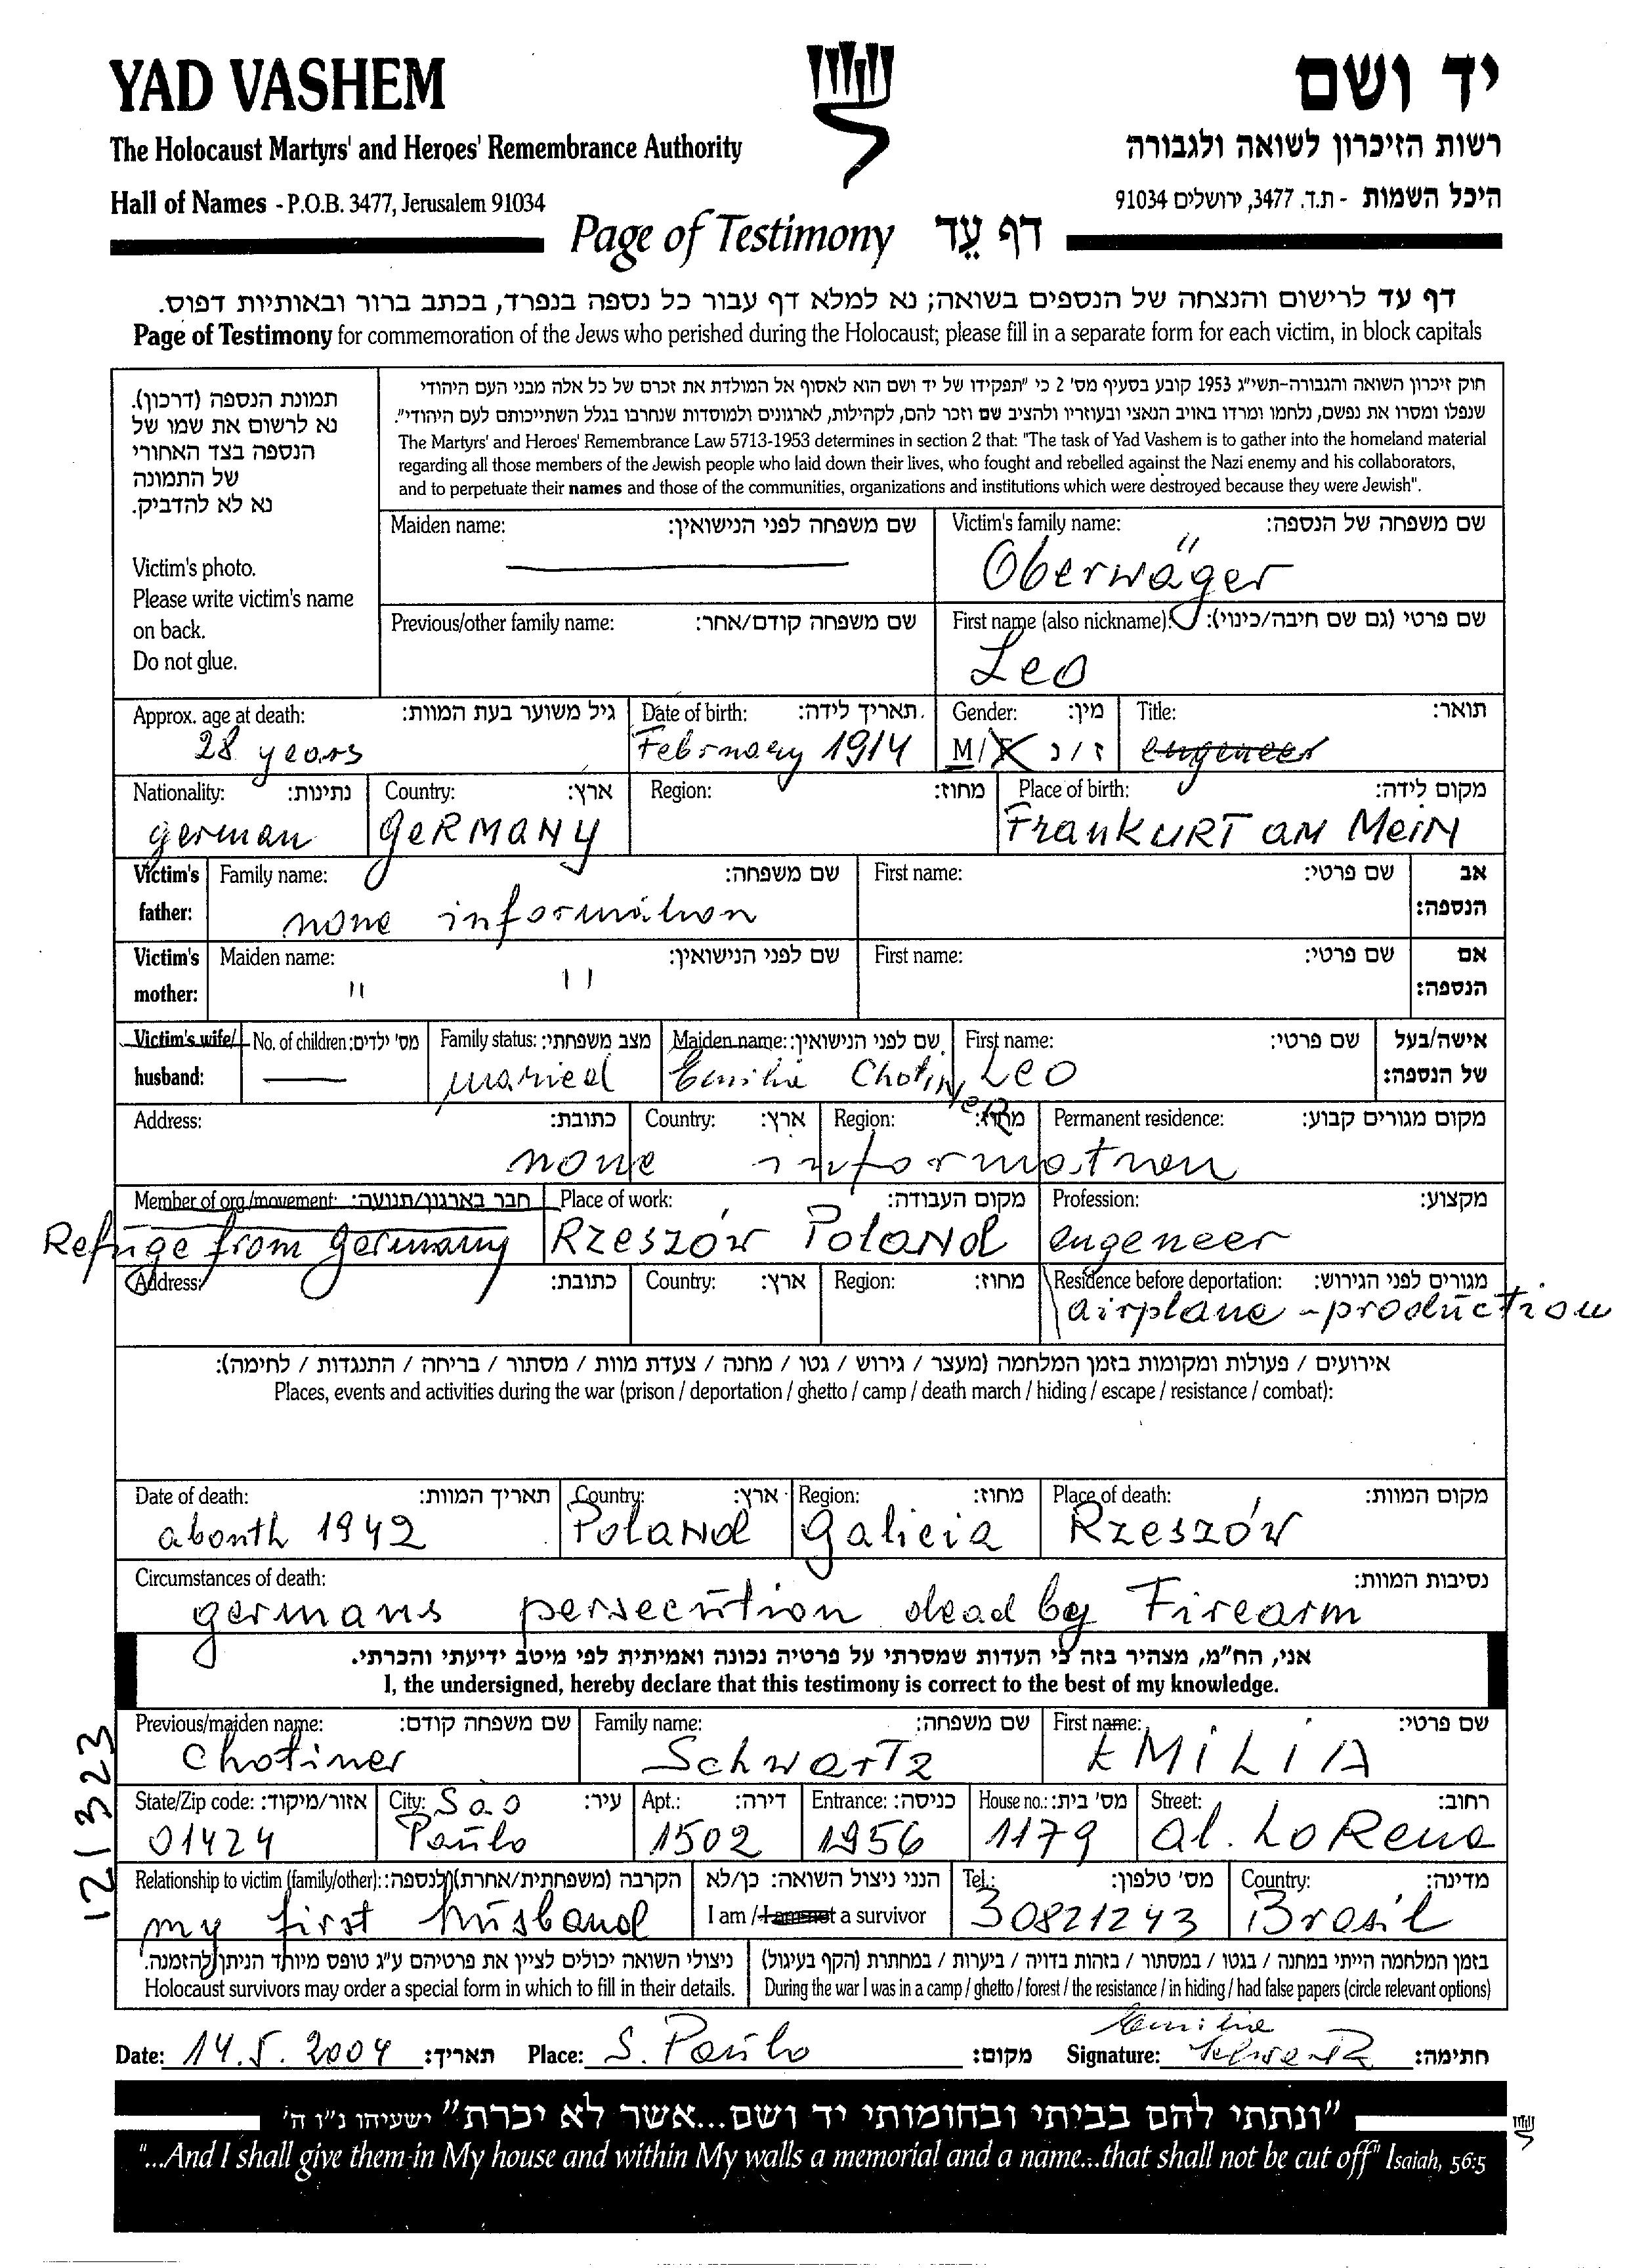 YAD VASHEM
יד ושם
The Holocaust Martyrs' and Heroes' Remembrance Authority
רשות הזיכרון לשואה ולגבורה
Hall of Names - P.O.B. 3477, Jerusalem 91034
היכל השמות - ת.ד. 3477, ירושלים 91034
Page of Testimony דף עֵד
דף עד לרישום והנצחה של הנספים בשואה; נא למלא דף עבור כל נספה בנפרד, בכתב ברור ובאותיות דפוס.
Page of Testimony for commemoration of the Jews who perished during the Holocaust; please fill in a separate form for each victim, in block capitals
תמונת הנספה (דרכון).
נא לרשום את שמו של
הנספה בצד האחורי
של התמונה
נא לא להדביק.
Victim's photo.
Please write victim's name
on back.
Do not glue.
חוק זיכרון השואה והגבורה-תשי"ג 1953 קובע בסעיף מס' 2 כי "תפקידו של יד ושם הוא לאסוף אל המולדת את זכרם של כל אלה מבני העם היהודי
שנפלו ומסרו את נפשם, נלחמו ומרדו באויב הנאצי ובעוזריו ולהציב שם וזכר להם, לקהילות, לארגונים ולמוסדות שנחרבו בגלל השתייכותם לעם היהודי".
The Martyrs' and Heroes' Remembrance Law 5713-1953 determines in section 2 that: "The task of Yad Vashem is to gather into the homeland material
regarding all those members of the Jewish people who laid down their lives, who fought and rebelled against the Nazi enemy and his collaborators,
and to perpetuate their names and those of the communities, organizations and institutions which were destroyed because they were Jewish".
Maiden name: שם משפחה לפני הנישואין: Victim's family name: שם משפחה של הנספה:
Oberwäger
Previous/other family name: שם משפחה קודם/אחר: First name (also nickname): שם פרטי (גם שם חיבה/כינוי):
Leo
Approx. age at death: גיל משוער בעת המוות: Date of birth: תאריך לידה: Gender: מין: Title: תואר:
28 years February 1914 M/F ז/נ engeneer
Nationality: נתינות: Country: ארץ: Region: מחוז: Place of birth: מקום לידה:
german GeRMANY FranKURT am MeiN
Victim's father: Family name: שם משפחה: First name: שם פרטי: אב הנספה:
none information
Victim's mother: Maiden name: שם לפני הנישואין: First name: שם פרטי: אם הנספה:
" "
Victim's wife/ husband: No. of children: מס' ילדים: Family status: מצב משפחתי: Maiden name: שם לפני הנישואין: First name: שם פרטי: אישה/בעל של הנספה:
maried Emilia Chotiner Leo
Address: כתובת: Country: ארץ: Region: מחוז: Permanent residence: מקום מגורים קבוע:
none information
Member of org./movement: חבר בארגון/תנועה: Place of work: מקום העבודה: Profession: מקצוע:
Refuge from germany Rzeszów Poland engeneer
Address: כתובת: Country: ארץ: Region: מחוז: Residence before deportation: מגורים לפני הגירוש:
airplane - production
אירועים / פעולות ומקומות בזמן המלחמה (מעצר / גירוש / גטו / מחנה / צעדת מוות / מסתור / בריחה / התנגדות / לחימה):
Places, events and activities during the war (prison / deportation / ghetto / camp / death march / hiding / escape / resistance / combat):
Date of death: תאריך המוות: Country: ארץ: Region: מחוז: Place of death: מקום המוות:
abouth 1942 Poland Galicia Rzeszów
Circumstances of death: נסיבות המוות:
germans persecution dead by Firearm
אני, הח"מ, מצהיר בזה כי העדות שמסרתי על פרטיה נכונה ואמיתית לפי מיטב ידיעתי והכרתי.
I, the undersigned, hereby declare that this testimony is correct to the best of my knowledge.
Previous/maiden name: שם משפחה קודם: Family name: שם משפחה: First name: שם פרטי:
Chotiner Schwartz EMILIA
State/Zip code: אזור/מיקוד: City: עיר: Apt.: דירה: Entrance: כניסה: House no.: מס' בית: Street: רחוב:
01424 Sao Paulo 1502 1956 1179 al. LoRena
Relationship to victim (family/other): הקרבה (משפחתית/אחרת) לנספה: הנני ניצול השואה: כן/לא Tel.: מס' טלפון: Country: מדינה:
my first husband I am / I am not a survivor 30821243 Brasil
121323
ניצולי השואה יכולים לציין את פרטיהם ע"ג טופס מיוחד הניתן להזמנה. בזמן המלחמה הייתי במחנה / בגטו / במסתור / בזהות בדויה / ביערות / במחתרת (הקף בעיגול)
Holocaust survivors may order a special form in which to fill in their details. During the war I was in a camp / ghetto / forest / the resistance / in hiding / had false papers (circle relevant options)
Date: 14.5.2004 תאריך: Place: S. Paulo מקום: Signature: Emilia Schwartz חתימה:
"ונתתי להם בביתי ובחומותי יד ושם...אשר לא יכרת" ישעיהו נ"ו ה'
"...And I shall give them in My house and within My walls a memorial and a name...that shall not be cut off" Isaiah, 56:5